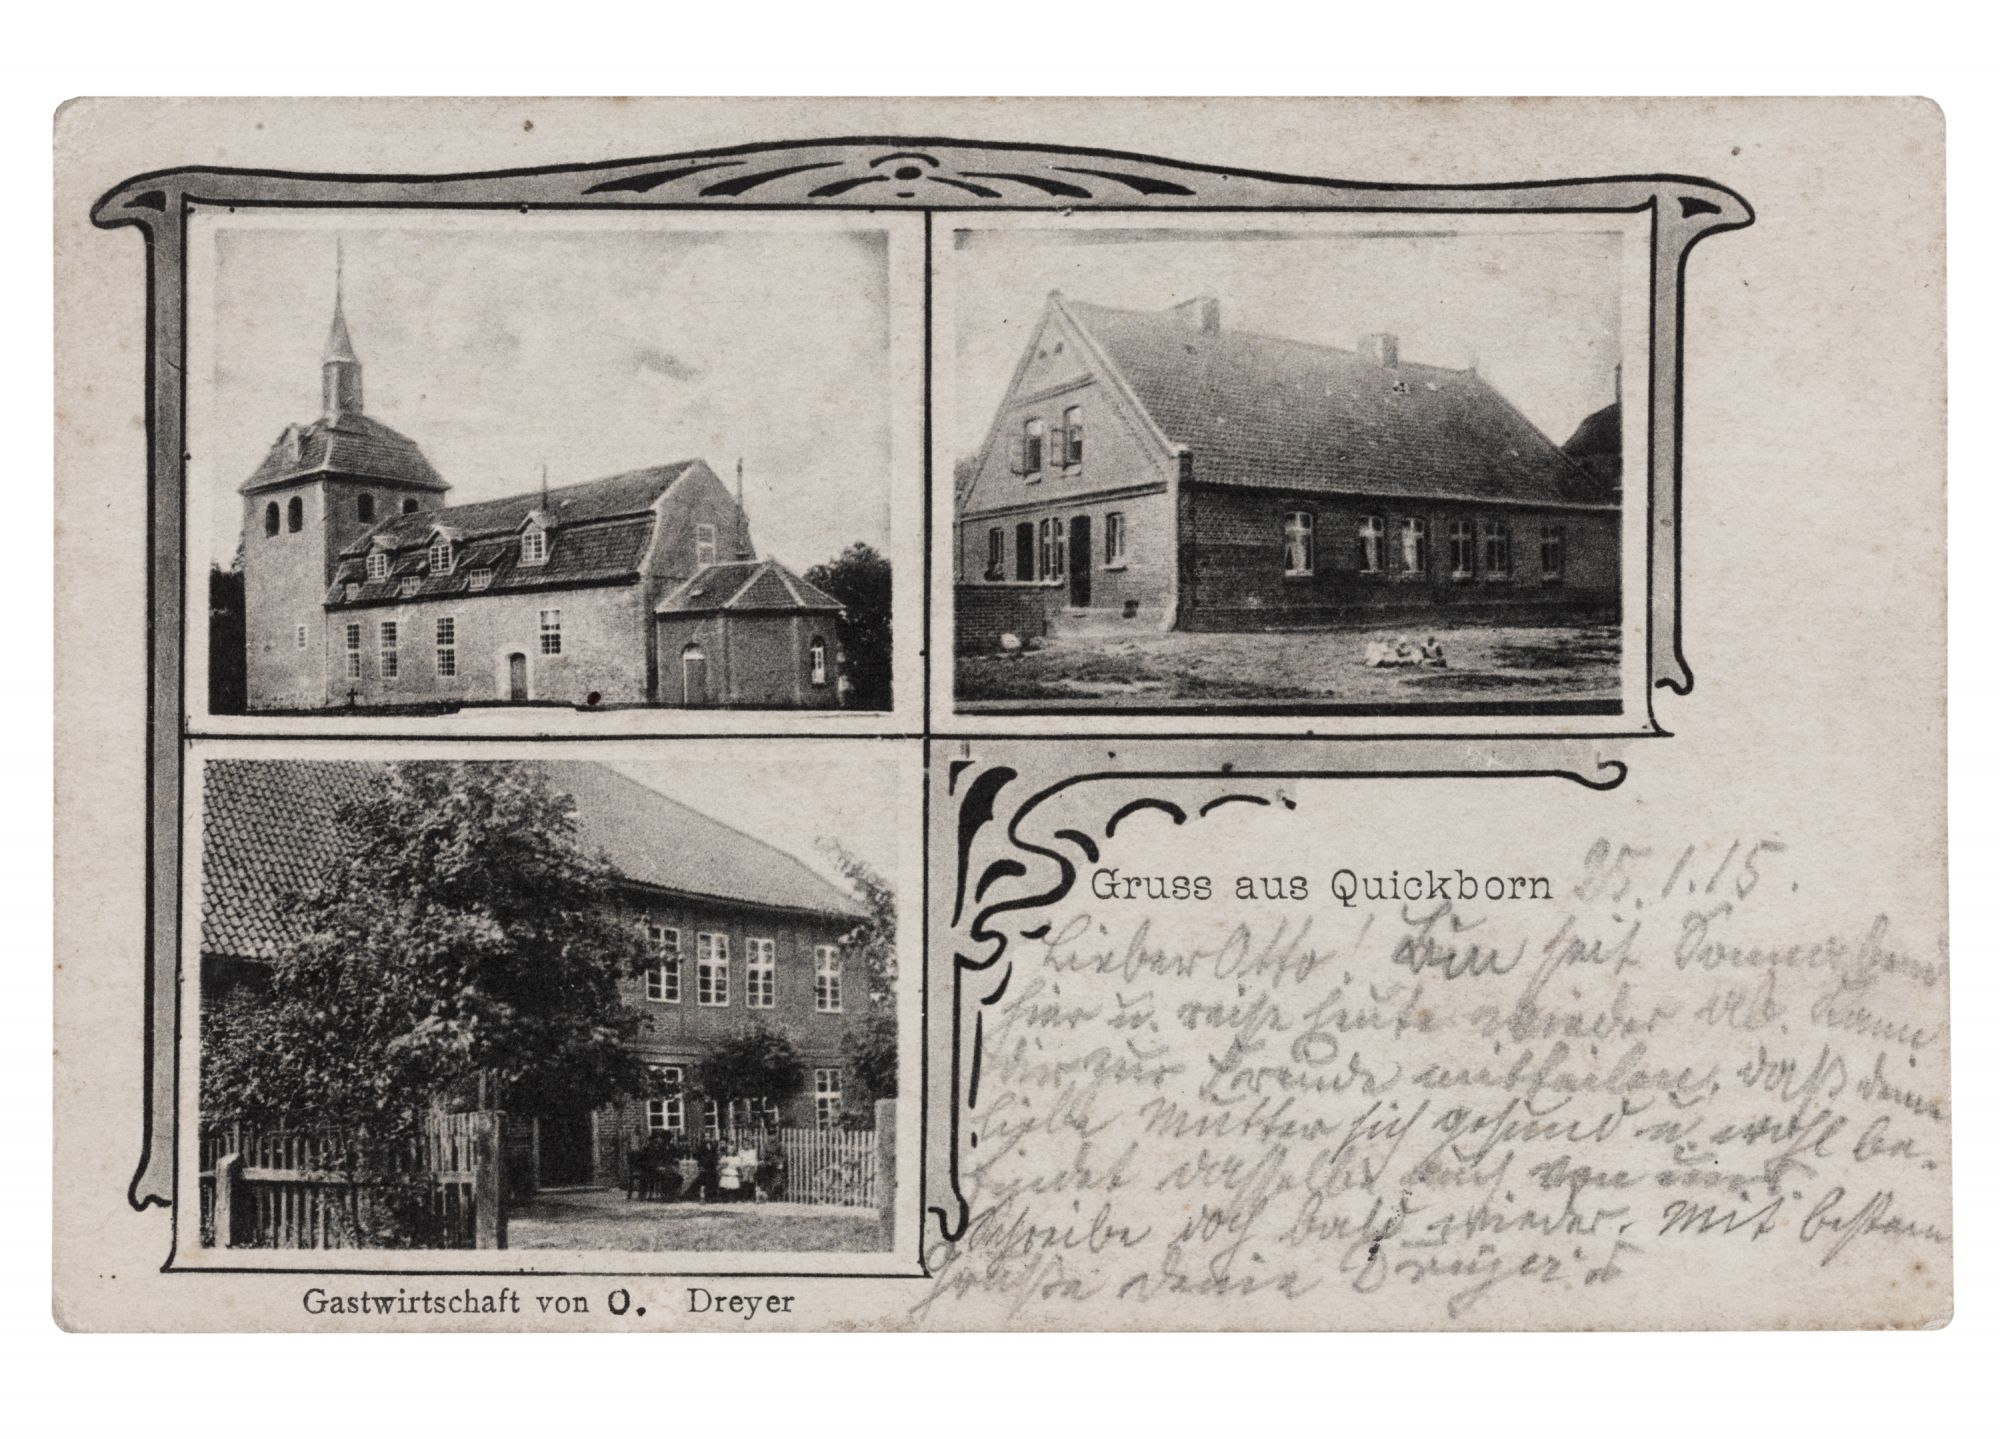 Gruss aus Quickborn 25.1.15.
Lieber Otto! Bin seit Sonnabend
hier u. reise heute wieder ab. Kann
dir zur Freude mittheilen, daß deine
liebe Mutter sich gesund u. wohl be-
findet dasselbe auch von uns
Schreibe doch bald wieder. Mit besten
Grüße deine
Gastwirtschaft von O. Dreyer